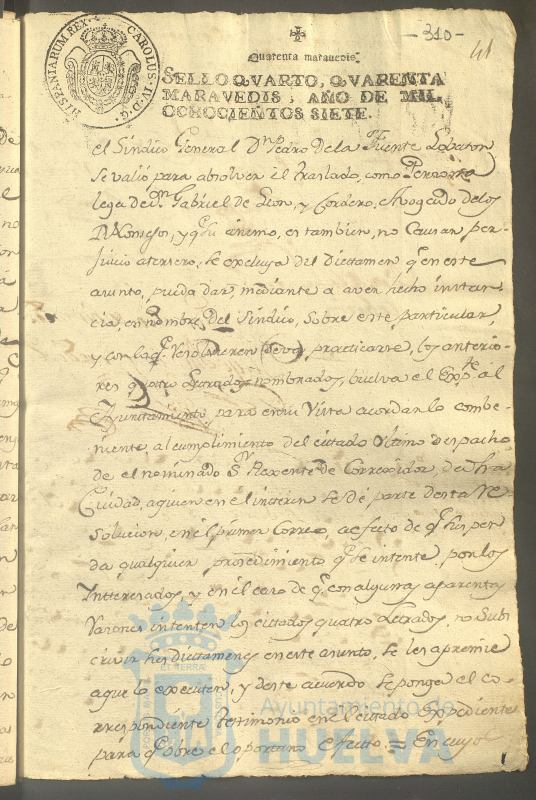 -310-
41
HISPANIARUM REX. CAROLUS. IV. D. G.
Quarenta maravedis.
SELLO QVARTO, QVARENTA
MARAVEDIS, AÑO DE MIL
OCHOCIENTOS SIETE.
el Sindico General Dn. Pedro de la Fuente Lobaton
se valió para absolver el traslado, como Persona
lega de Dn. Gabriel de Leon, y Cordero, Abogado de los
Rs. Consejos, y qe. su animo, es tambien, no causar per-
juicio a tercero, se excluya del Dictamen qe. en este
asunto, pueda dar, mediante a aver hecho instan-
cia, en nombre del Sindico, sobre este particular,
y con lo qe. practicaren, los anterio-
res quatro Letrados nombrados, buelva el Expte. al
Ayuntamiento para en su Vista acordar lo combe-
niente, al cumplimiento del citado Ultimo despacho
de el nominado Sr. Rexente de Corregidor, de dha
Ciudad, a quien en el interin se dé parte de esta Re-
solucion, en el primer Correo, a efecto de qe. suspen
da qualquier procedimiento qe. se intente, por los
Ynteresados, y en el caso de qe. con algunas aparentes
razones intenten los citados quatro Letrados, no Subs
crivir sus dictamenes en este asunto, se les apremie
a que lo executen, y de este acuerdo se ponga el co-
rrespondiente testimonio en el citado Expediente
para qe. obre el oportuno efecto. = En cuyo
ET TERRAE
Ayuntamiento de
HUELVA